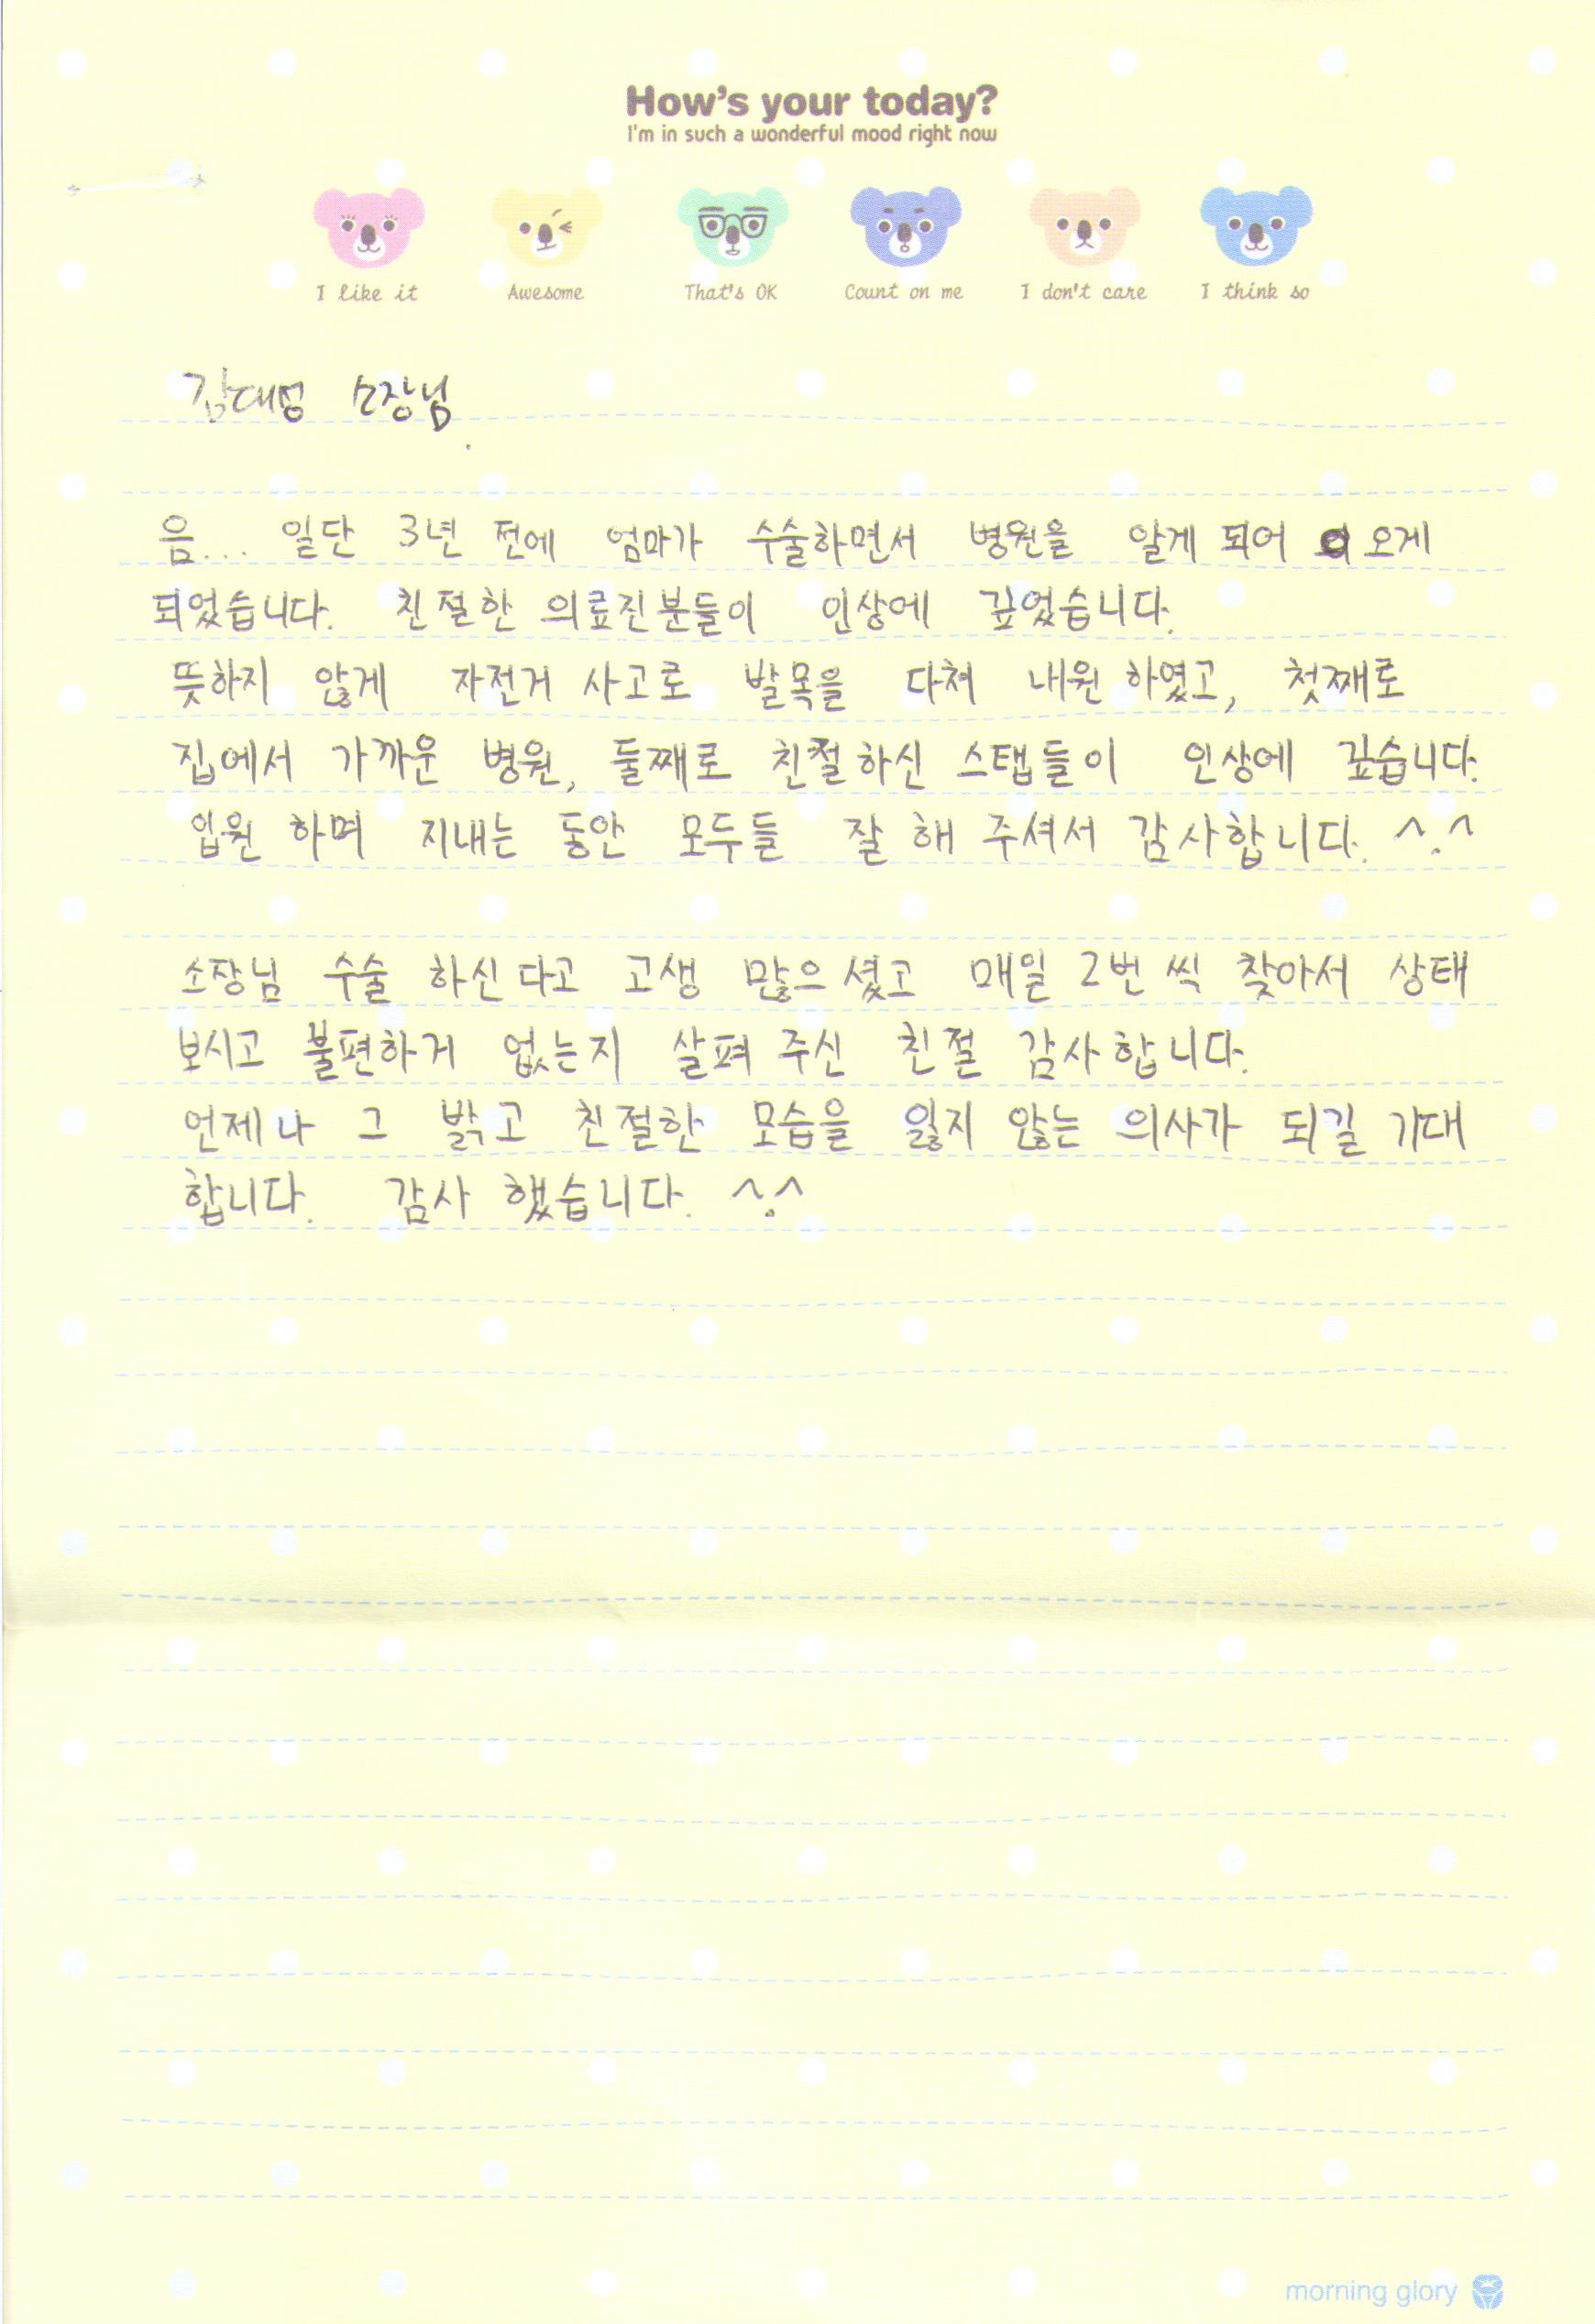 How's your today?
I'm in such a wonderful mood right now
I like it Awesome That's OK Count on me I don't care I think so
소장님
음... 일단 3년 전에 엄마가 수술하면서 병원을 알게 되어 오게
되었습니다. 친절한 의료진분들이 인상에 깊었습니다.
뜻하지 않게 자전거 사고로 발목을 다쳐 내원 하였고, 첫째로
집에서 가까운 병원, 둘째로 친절하신 스탭들이 인상에 깊습니다.
입원 하며 지내는 동안 모두들 잘 해 주셔서 감사합니다. ^.^
소장님 수술 하신다고 고생 많으셨고 매일 2번 씩 찾아서 상태
보시고 불편하거 없는지 살펴 주신 친절 감사합니다.
언제나 그 밝고 친절한 모습을 잃지 않는 의사가 되길 기대
합니다. 감사 했습니다. ^.^
morning glory